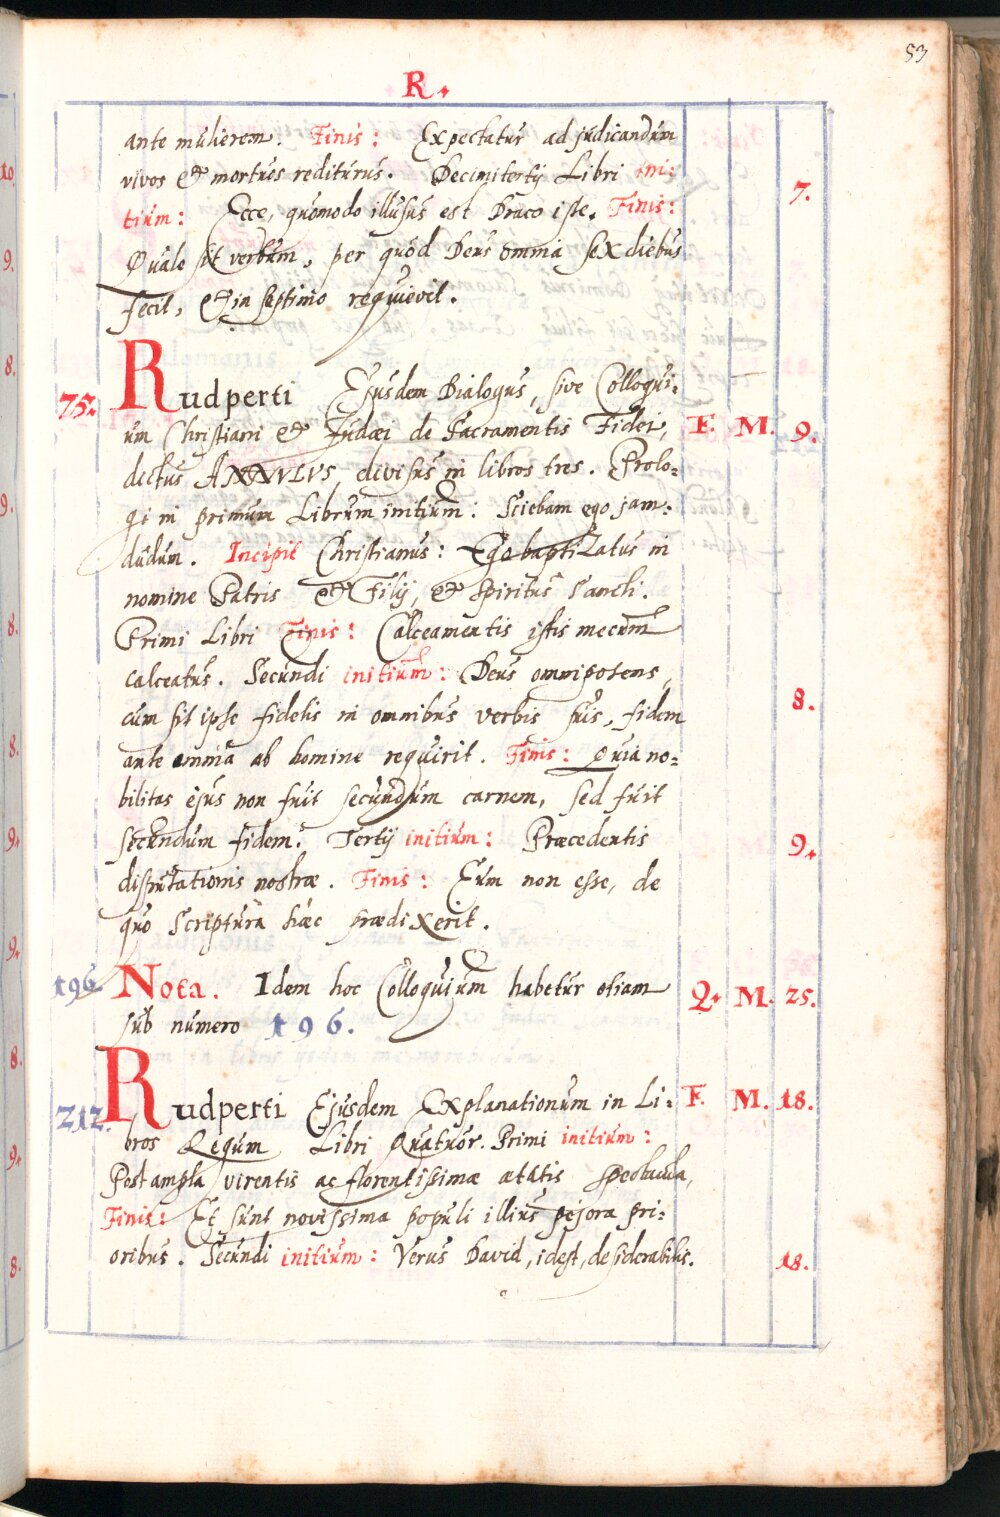 53
R.
ante mulierem. Finis: Expectatur ad judicandum
vivos et mortuos rediturus. Decimitertij Libri ini:
7.
tium: Ecce, quomodo illusus est Draco iste. Finis:
Quale sit verbum, per quod Deus omnia sex diebus
fecit, et in septimo requievit.
75. Rudperti Ejusdem Dialogus, sive Colloqui:
um Christiani et Judæi de Sacramentis Fidei, F. M. 9.
dictus ANNVLVS, divisus in libros tres. Prolo=
gi in primum Librum initium: Sciebam ego jam:
dudum. Incipit Christianus: Ego baptizatus in
nomine Patris et Filij, et Spiritus Sancti.
Primi Libri Finis: Calceamentis istis mecum
calceatus. Secundi initium: Deus omnipotens,
cum sit ipse fidelis in omnibus verbis suis, fidem 8.
ante omnia ab homine requirit. Finis: Quia no=
bilitas ejus non fuit secundum carnem, sed fuit
secundum fidem. Tertij initium: Præcedentis 9.
disputationis nostræ. Finis: Eum non esse, de
quo Scriptura hæc prædixerit.
196. Nota. Idem hoc Colloquium habetur etiam Q. M. 25.
sub numero 196.
212. Rudperti Ejusdem Explanationum in Li: F. M. 18.
bros Regum Libri Quatuor. Primi initium:
Post ampla virentis ac florentissimæ ætatis spectacula,
Finis: Et sunt novissima populi illius pejora pri:
oribus. Secundi initium: Verus David, idest, desiderabilis. 18.